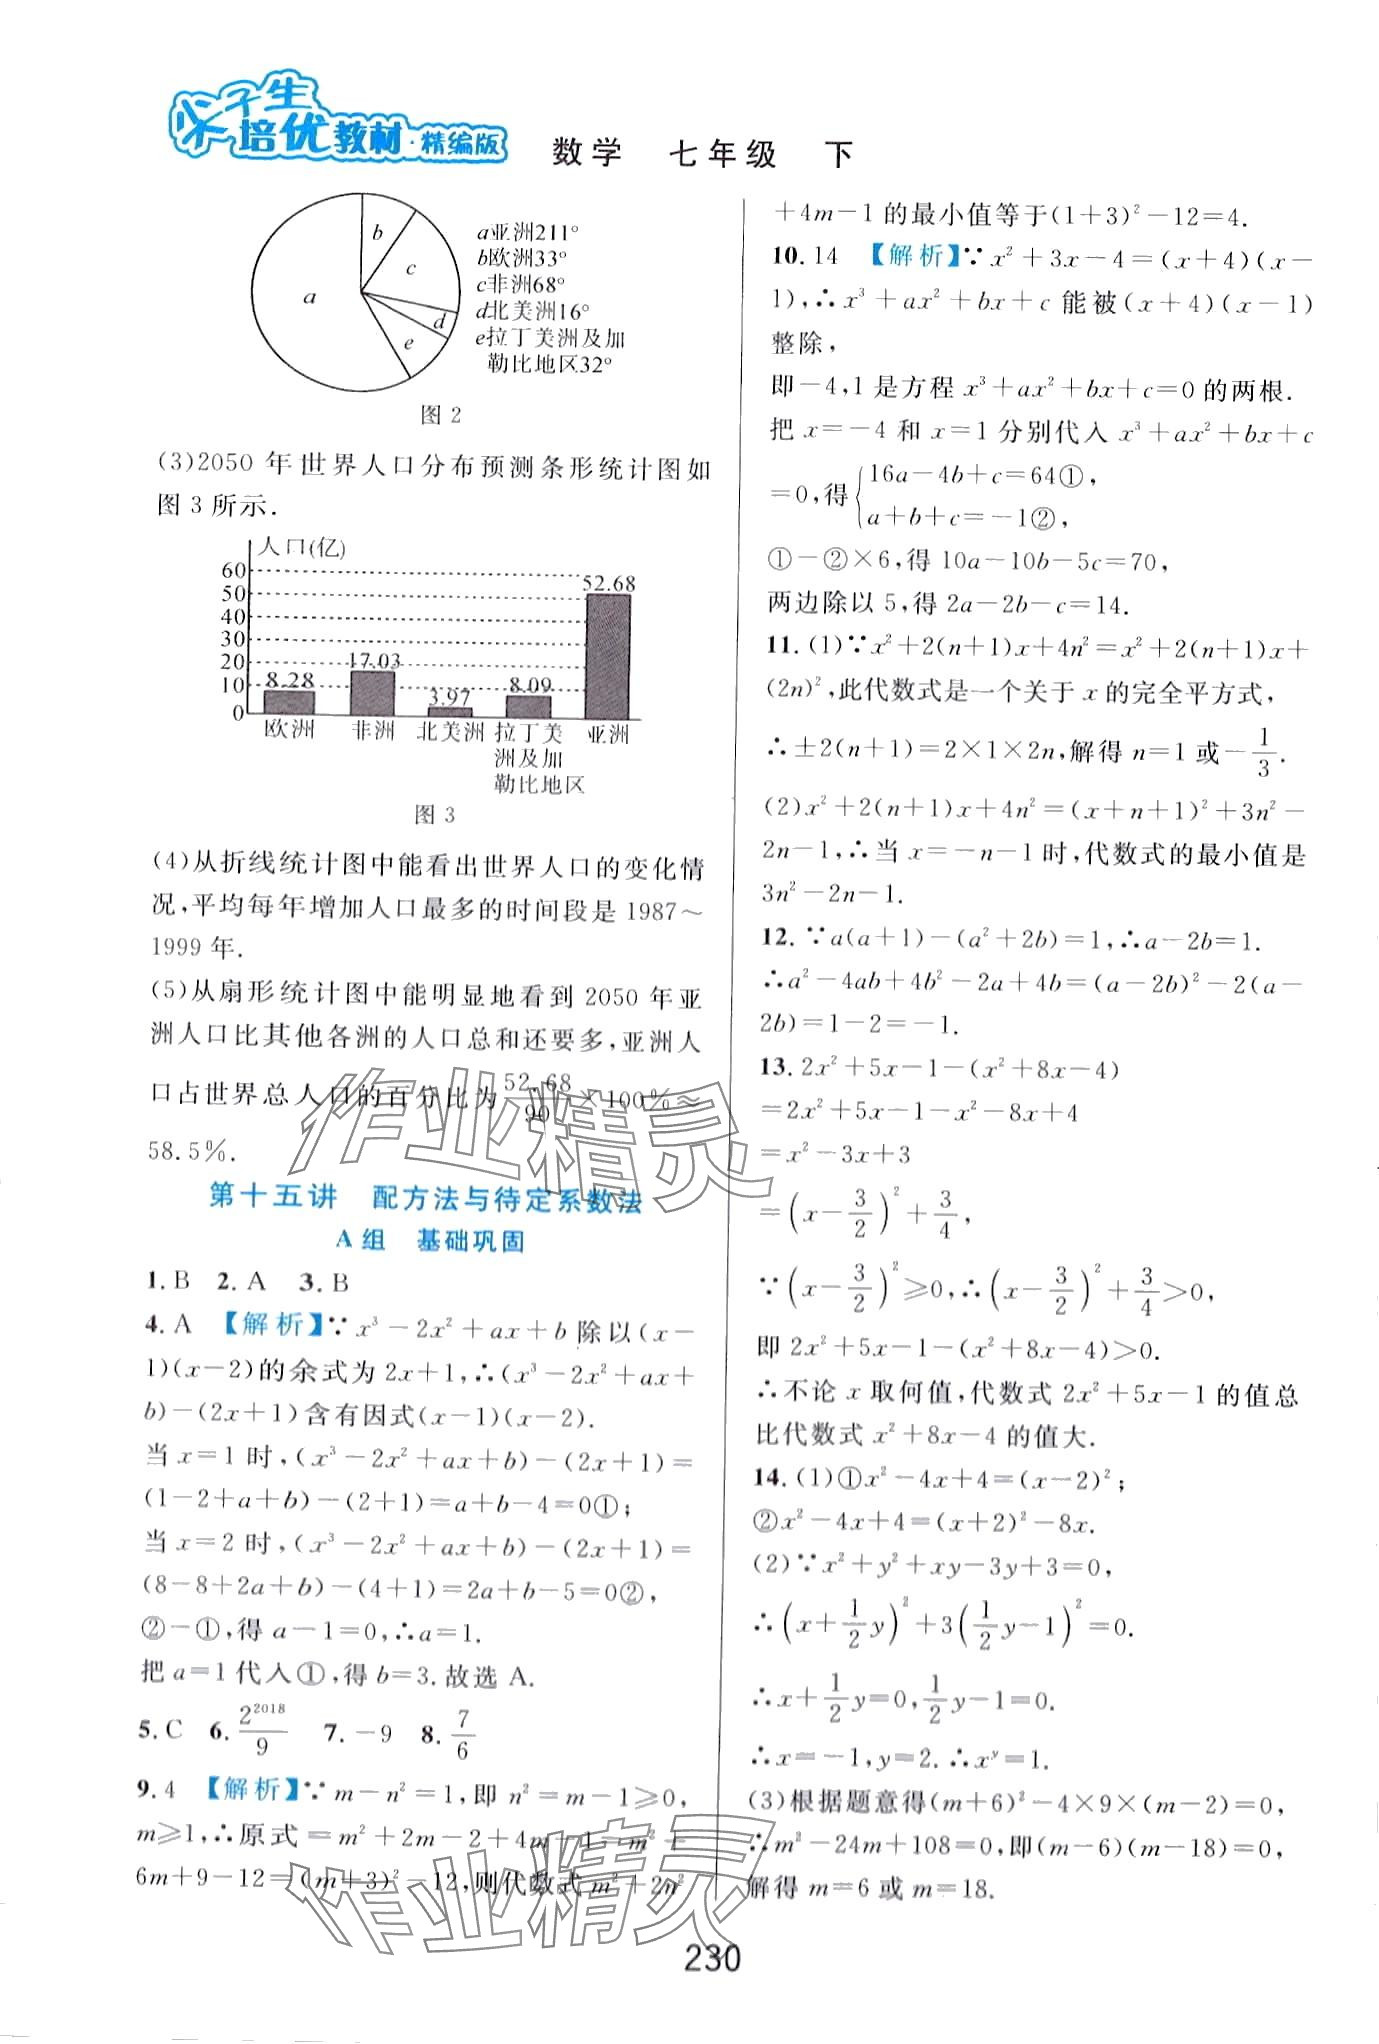 尖子生
培优教材·精编版
数学 七年级 下
a b c d e
a亚洲211°
b欧洲33°
c非洲68°
d北美洲16°
e拉丁美洲及加
勒比地区32°
图 2
(3)2050 年世界人口分布预测条形统计图如
图 3 所示.
人口(亿)
60
50
40
30
20
10
0
8.28
17.03
3.97
8.09
52.68
欧洲 非洲 北美洲 拉丁美 亚洲
洲及加
勒比地区
图 3
(4)从折线统计图中能看出世界人口的变化情
况,平均每年增加人口最多的时间段是 1987～
1999 年.
(5)从扇形统计图中能明显地看到 2050 年亚
洲人口比其他各洲的人口总和还要多,亚洲人
口占世界总人口的百分比为 52.68/90 ×100%≈
58.5%.
第十五讲 配方法与待定系数法
A 组 基础巩固
1. B 2. A 3. B
4. A 【解析】∵x³－2x²＋ax＋b 除以(x－
1)(x－2)的余式为 2x＋1,∴(x³－2x²＋ax＋
b)－(2x＋1)含有因式(x－1)(x－2).
当 x＝1 时,(x³－2x²＋ax＋b)－(2x＋1)＝
(1－2＋a＋b)－(2＋1)＝a＋b－4＝0①;
当 x＝2 时,(x³－2x²＋ax＋b)－(2x＋1)＝
(8－8＋2a＋b)－(4＋1)＝2a＋b－5＝0②,
②－①,得 a－1＝0,∴a＝1.
把 a＝1 代入①,得 b＝3. 故选 A.
5. C 6. 2²⁰¹⁸/9 7. －9 8. 7/6
9. 4 【解析】∵m－n²＝1,即 n²＝m－1≥0,
m≥1,∴原式＝m²＋2m－2＋4m－1＝m²＋
6m＋9－12＝(m＋3)²－12,则代数式 m²＋2n²
＋4m－1 的最小值等于(1＋3)²－12＝4.
10. 14 【解析】∵x²＋3x－4＝(x＋4)(x－
1),∴x³＋ax²＋bx＋c 能被(x＋4)(x－1)
整除,
即－4,1 是方程 x³＋ax²＋bx＋c＝0 的两根.
把 x＝－4 和 x＝1 分别代入 x³＋ax²＋bx＋c
＝0,得{16a－4b＋c＝64①,
a＋b＋c＝－1②,
①－②×6,得 10a－10b－5c＝70,
两边除以 5,得 2a－2b－c＝14.
11. (1)∵x²＋2(n＋1)x＋4n²＝x²＋2(n＋1)x＋
(2n)²,此代数式是一个关于 x 的完全平方式,
∴±2(n＋1)＝2×1×2n,解得 n＝1 或－1/3.
(2)x²＋2(n＋1)x＋4n²＝(x＋n＋1)²＋3n²－
2n－1,∴当 x＝－n－1 时,代数式的最小值是
3n²－2n－1.
12. ∵a(a＋1)－(a²＋2b)＝1,∴a－2b＝1.
∴a²－4ab＋4b²－2a＋4b＝(a－2b)²－2(a－
2b)＝1－2＝－1.
13. 2x²＋5x－1－(x²＋8x－4)
＝2x²＋5x－1－x²－8x＋4
＝x²－3x＋3
＝(x－3/2)²＋3/4,
∵(x－3/2)²≥0,∴(x－3/2)²＋3/4＞0,
即 2x²＋5x－1－(x²＋8x－4)＞0.
∴不论 x 取何值,代数式 2x²＋5x－1 的值总
比代数式 x²＋8x－4 的值大.
14. (1)①x²－4x＋4＝(x－2)²;
②x²－4x＋4＝(x＋2)²－8x.
(2)∵x²＋y²＋xy－3y＋3＝0,
∴(x＋1/2y)²＋3(1/2y－1)²＝0.
∴x＋1/2y＝0,1/2y－1＝0.
∴x＝－1,y＝2. ∴xʸ＝1.
(3)根据题意得(m＋6)²－4×9×(m－2)＝0,
∴m²－24m＋108＝0,即(m－6)(m－18)＝0,
解得 m＝6 或 m＝18.
作业精灵
作业精灵
230